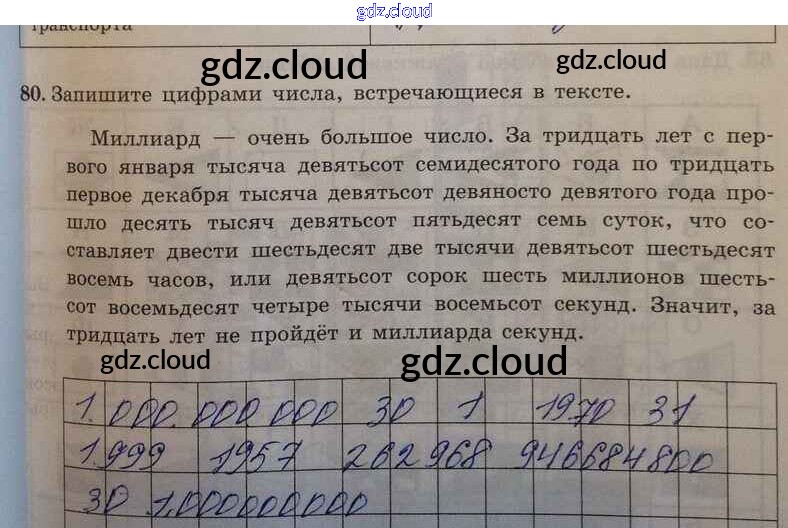 gdz.cloud
транспорта
gdz.cloud gdz.cloud
80. Запишите цифрами числа, встречающиеся в тексте.
Миллиард — очень большое число. За тридцать лет с пер-
вого января тысяча девятьсот семидесятого года по тридцать
первое декабря тысяча девятьсот девяносто девятого года про-
шло десять тысяч девятьсот пятьдесят семь суток, что со-
ставляет двести шестьдесят две тысячи девятьсот шестьдесят
восемь часов, или девятьсот сорок шесть миллионов шесть-
сот восемьдесят четыре тысячи восемьсот секунд. Значит, за
тридцать лет не пройдёт и миллиарда секунд.
gdz.cloud gdz.cloud
1.000.000 000 30 1 1970 31
1.999 1957 262 968 946684800
30 1.000000000